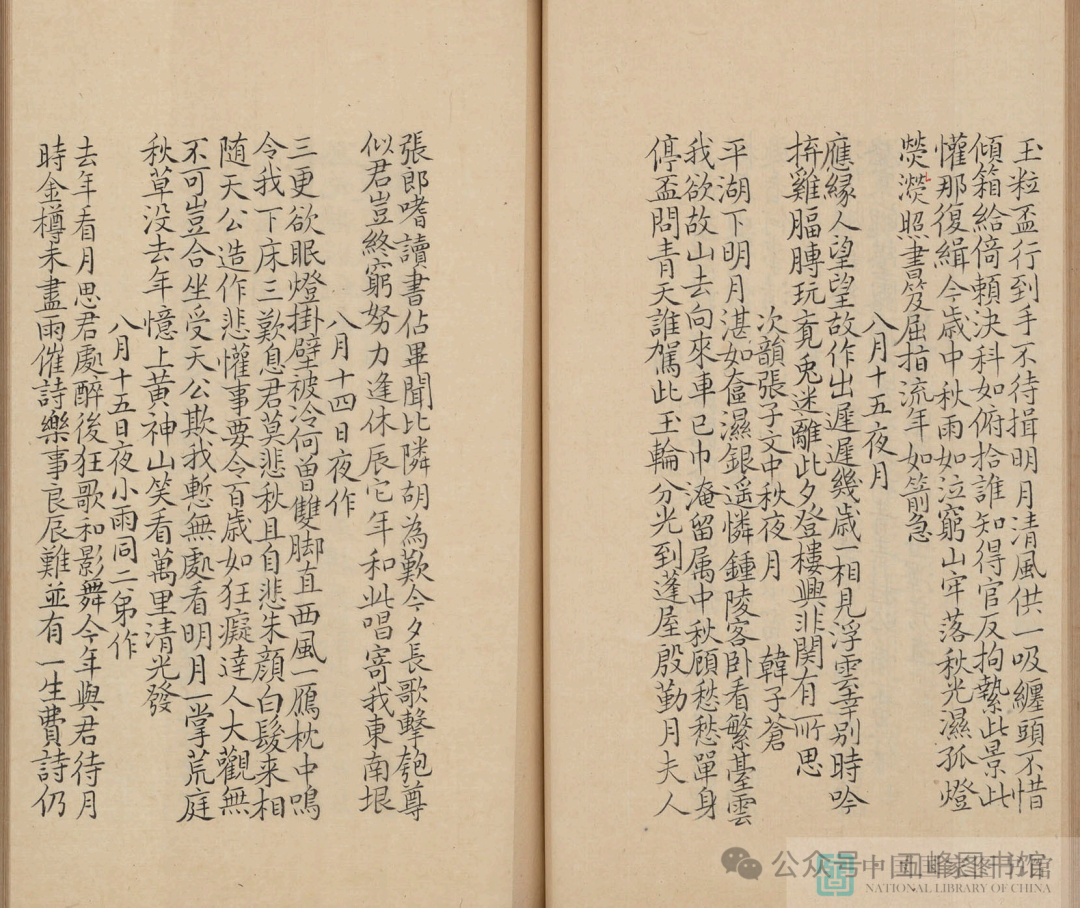 玉粒盃行到手不待揖明月清風供一吸纏頭不惜
傾箱給倚賴決科如俯拾誰知得官反拘縶此景此
懽那復緝今歲中秋雨如泣窮山牢落秋光濕孤燈
熒濙照書笈屈指流年如箭急
八月十五夜月
應緣人望望故作出遲遲幾歲一相見浮雲幸別時吟
拚雞膈膊玩竟兎迷離此夕登樓興非関有所思
次韻張子文中秋夜月 韓子蒼
平湖下明月湛如奩濕銀遥憐鍾陵客卧看繁臺雲
我欲故山去向來車已巾淹留属中秋顧愁愁單身
停盃問青天誰駕此玉輪分光到蓬屋殷勤月夫人
張郎嗜讀書佔畢聞比隣胡為歎今夕長歌擊匏尊
似君豈終窮努力逢休辰它年和此唱寄我東南垠
八月十四日夜作
三更欲眠燈掛壁被冷何曾雙脚直西風一鴈枕中鳴
令我下床三歎息君莫悲秋且自悲朱顔白髮来相
随天公造作悲懽事要令百歲如狂癡達人大觀無
不可豈合坐受天公欺我慙無處看明月一掌荒庭
秋草没去年憶上黄神山笑看萬里清光發
八月十五日夜小雨同二弟作
去年看月思君處醉後狂歌和影舞今年與君待月
時金樽未盡雨催詩樂事良辰難並有一生費詩仍
公众号
中国国家图书馆
NATIONAL LIBRARY OF CHINA